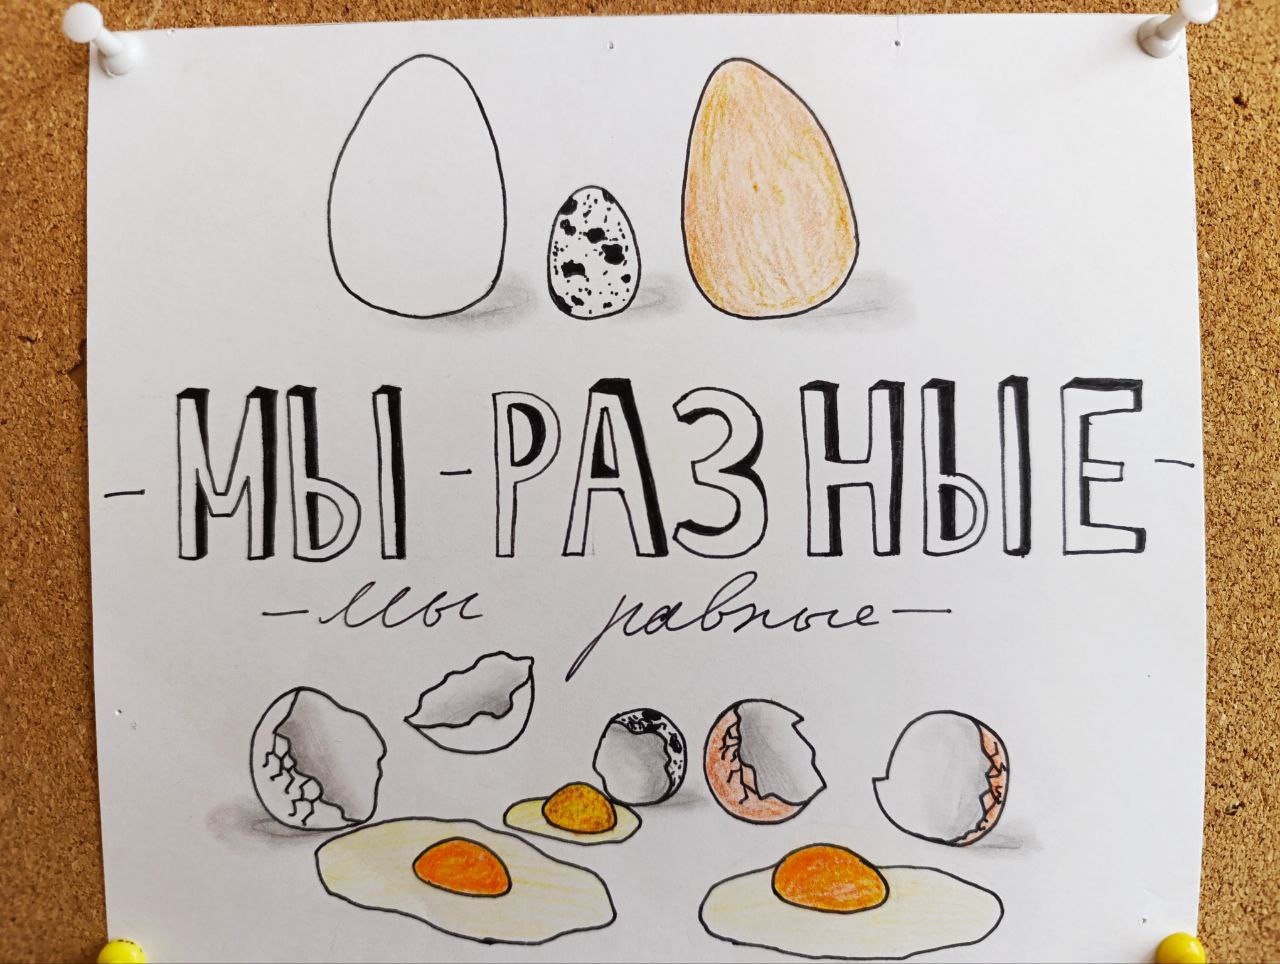 - МЫ - РАЗНЫЕ -
- мы равные -